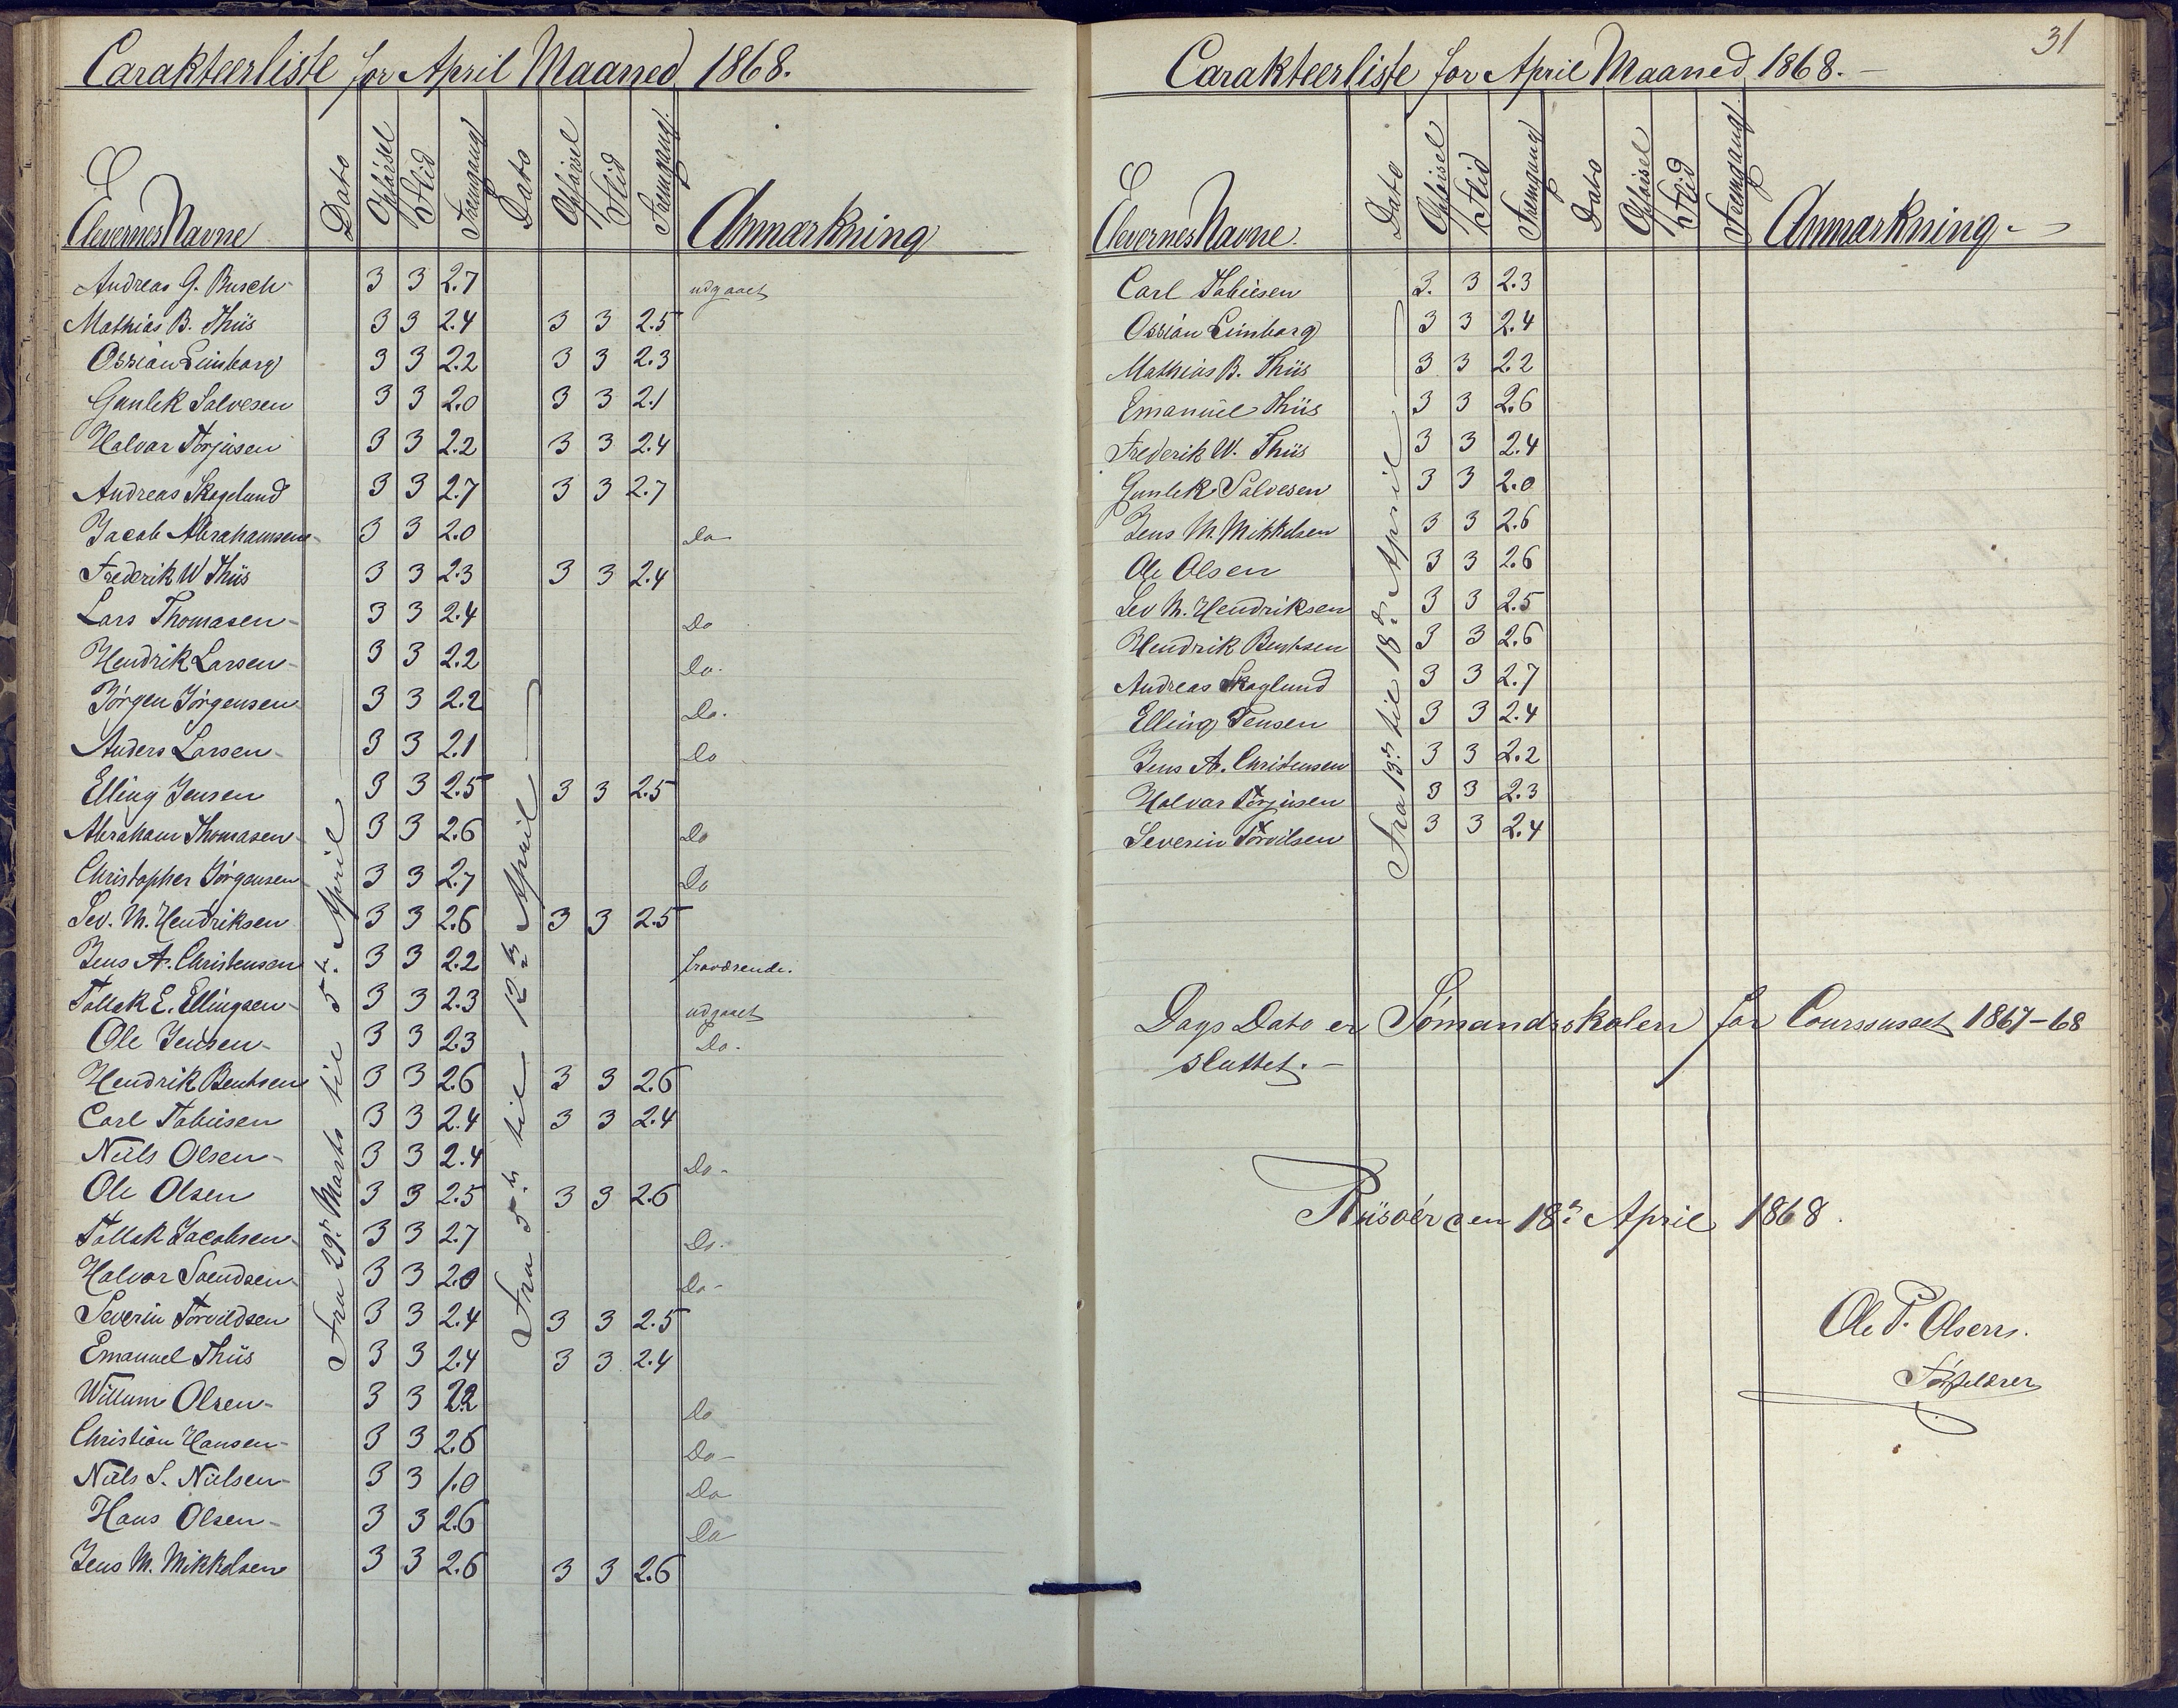 Carakteerliste for April Maaned 1868.
Elevernes Navne Dato Opførsel Flid Fremgang Dato Opførsel Flid Fremgang. Anmærkning
Fra 29de Marts til 5te April
Fra 5te til 12te April
Andreas G. Busch 3 3 2.7 udgaaet
Mathias B. Thiis 3 3 2.4 3 3 2.5
Ossian Limborg 3 3 2.2 3 3 2.3
Gunlek Salvesen 3 3 2.0 3 3 2.1
Halvor Torjusen 3 3 2.2 3 3 2.4
Andreas Skoglund 3 3 2.7 3 3 2.7
Jacob Abrahamsen 3 3 2.0 Do
Frederik W Thiis 3 3 2.3 3 3 2.4
Lars Thomasen 3 3 2.4 Do
Hendrik Larsen 3 3 2.2 Do.
Jörgen Jörgensen 3 3 2.2 Do.
Anders Larsen 3 3 2.1 Do
Elling Jensen 3 3 2.5 3 3 2.5
Abraham Thomasen 3 3 2.6 Do
Christopher Jörgensen 3 3 2.7 Do
Sev. M. Hendriksen 3 3 2.6 3 3 2.5
Jens A. Christensen 3 3 2.2 fraværende.
Tallak E. Ellingsen 3 3 2.3 udgaaet
Ole Jensen 3 3 2.3 Do.
Hendrik Bentsen 3 3 2.6 3 3 2.6
Carl Tobiesen 3 3 2.4 3 3 2.4
Niels Olsen 3 3 2.4 Do
Ole Olsen 3 3 2.5 3 3 2.6
Tallak Jacobsen 3 3 2.7 Do.
Halvor Svendsen 3 3 2.0 Do
Severin Torvildsen 3 3 2.4 3 3 2.5
Emanuel Thiis 3 3 2.4 3 3 2.4
Willum Olsen 3 3 2.2 Do
Christian Hansen 3 3 2.6 Do
Niels S. Nielsen 3 3 1.0 Do
Hans Olsen 3 3 2.6 Do
Jens M. Mikkelsen 3 3 2.6 3 3 2.6
31
Carakteerliste for April Maaned 1868.
Elevernes Navne. Dato Opførsel Flid Fremgang Dato Opførsel Flid Fremgang. Anmærkning
Fra 13de til 18de April
Carl Tobiesen 3. 3 2.3
Ossian Limborg 3 3 2.4
Mathias B. Thiis 3 3 2.2
Emanuel Thiis 3 3 2.6
Frederik W. Thiis 3 3 2.4
Gunlek Salvesen 3 3 2.0
Jens M. Mikkelsen 3 3 2.6
Ole Olsen 3 3 2.6
Sev M. Hendriksen 3 3 2.5
Hendrik Bentsen 3 3 2.6
Andreas Skoglund 3 3 2.7
Elling Jensen 3 3 2.4
Jens A. Christensen 3 3 2.2
Halvor Torjusen 3 3 2.3
Severin Torvilsen 3 3 2.4
Dags Dato er Sömandsskolen for Coursuset 1867-68
sluttet.
Riisöer den 18de April 1868.
Ole T. Olsen.